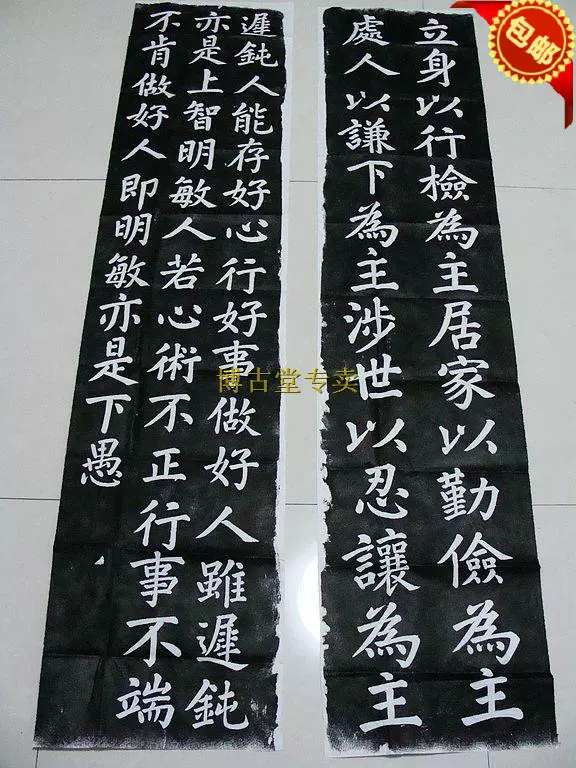 立身以行檢為主居家以勤儉為主
處人以謙下為主涉世以忍讓為主
遲鈍人能存好心行好事做好人雖遲鈍
亦是上智明敏人若心術不正行事不端
不肯做好人即明敏亦是下愚
包邮
博古堂专卖